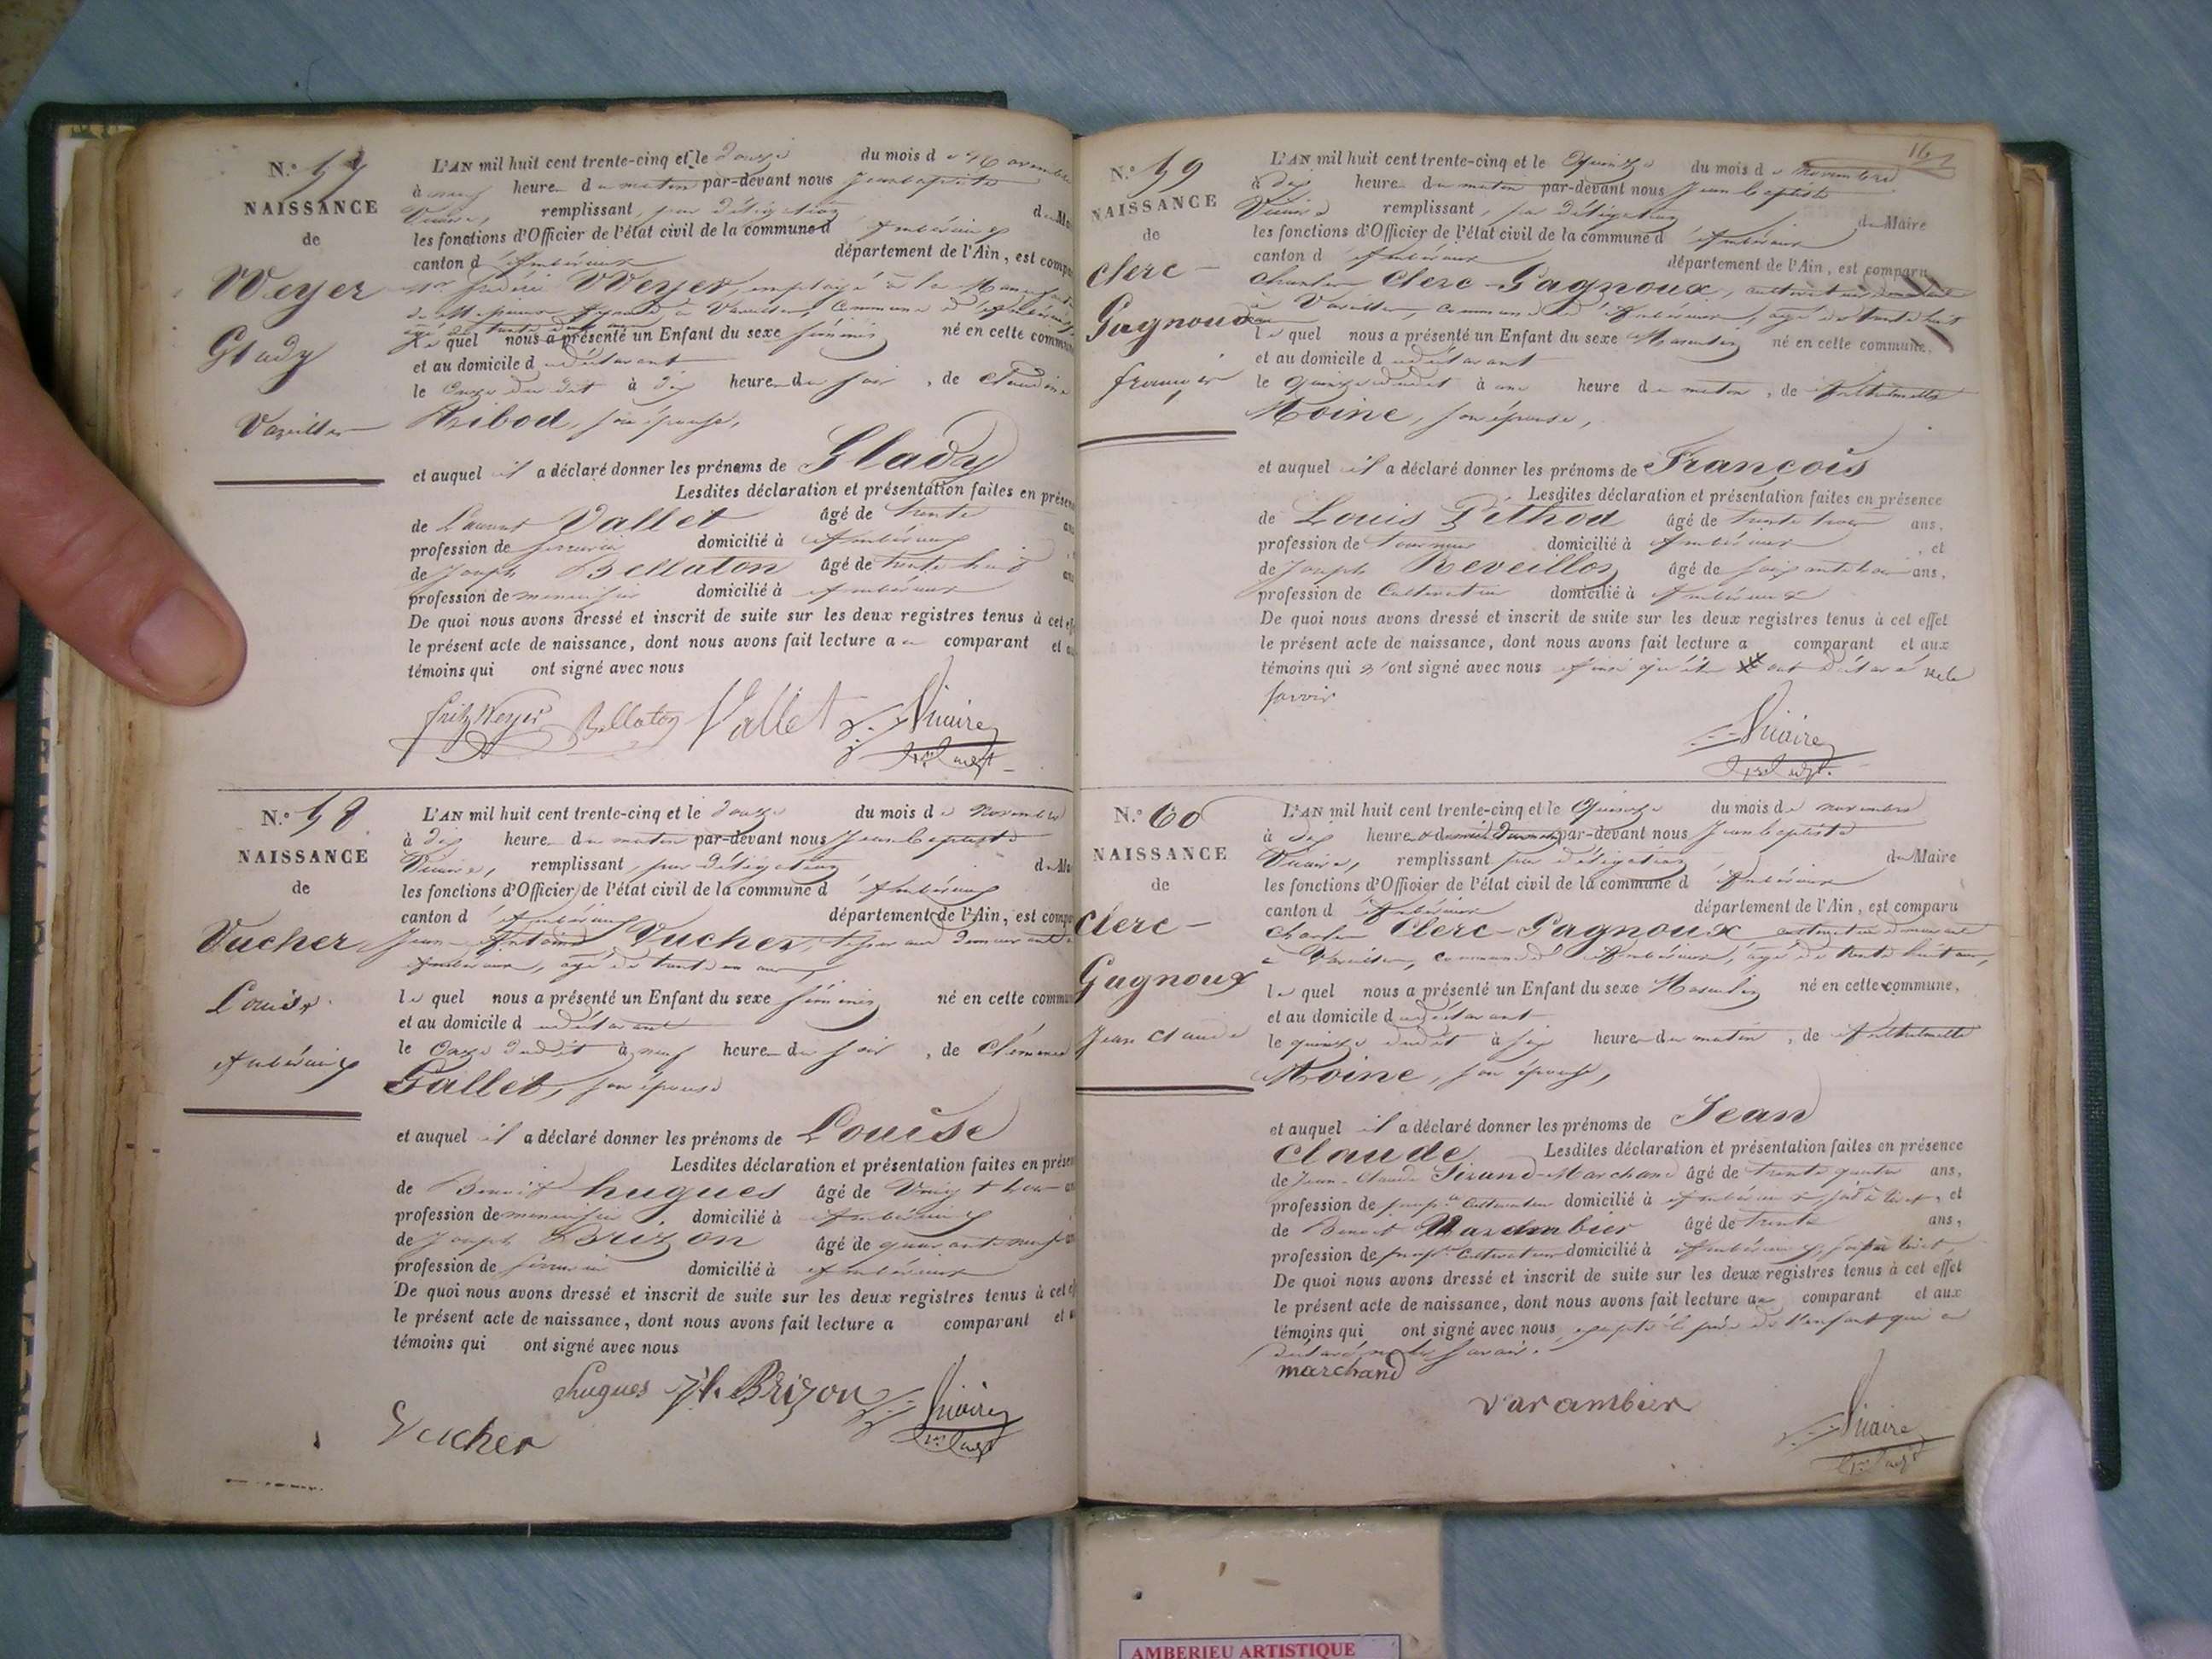 N.° 57
NAISSANCE
de
Weyer
Glady
Vareilles
L'AN mil huit cent trente-cinq et le douze du mois de Novembre
à neuf heures du matin par-devant nous Jean baptiste
Vicaire, remplissant, par délégation du Ma
les fonctions d'Officier de l'état civil de la commune d'Ambérieux
canton d'Ambérieux département de l'Ain, est compa
Weyer, employé à la Manufact
à Vareilles, Commune d'Ambérieux
âgé de trente deux ans
lequel nous a présenté un Enfant du sexe féminin né en cette commune
et au domicile du déclarant
le onze du dit à dix heures du soir, de Claudine
Ribod, son épouse,
et auquel il a déclaré donner les prénoms de Glady
Lesdites déclaration et présentation faites en présen
de Laurent Vallet âgé de trente ans
profession de serrurier domicilié à Ambérieux
de Joseph Bellaton âgé de trente huit ans
profession de menuisier domicilié à Ambérieux
De quoi nous avons dressé et inscrit de suite sur les deux registres tenus à cet eff
le présent acte de naissance, dont nous avons fait lecture au comparant et au
témoins qui ont signé avec nous
fritz Weyer Bellaton Vallet Vicaire
N.° 58
NAISSANCE
de
Vucher
Louise
Ambérieux
L'AN mil huit cent trente-cinq et le douze du mois de novembre
à dix heures du matin par-devant nous Jean baptiste
Vicaire, remplissant, par délégation du Ma
les fonctions d'Officier de l'état civil de la commune d'Ambérieux
canton d'Ambérieux département de l'Ain, est compa
Jean Antoine Vucher, tisserand demeurant à
Ambérieux, âgé de
lequel nous a présenté un Enfant du sexe féminin né en cette commun
et au domicile du déclarant
le onze dudit à neuf heures du soir, de Clémence
Gallet, son épouse
et auquel il a déclaré donner les prénoms de Louise
Lesdites déclaration et présentation faites en présen
de Benoit hugues âgé de Vingt trois
profession de menuisier domicilié à Ambérieux
de Joseph Brizon âgé de quarante neuf
profession de serrurier domicilié à Ambérieux
De quoi nous avons dressé et inscrit de suite sur les deux registres tenus à cet
le présent acte de naissance, dont nous avons fait lecture a comparant et
témoins qui ont signé avec nous
hugues Jh. Brizon Vicaire
Vucher
16
N.° 59
NAISSANCE
de
Clerc-
Gagnoux
françois
L'AN mil huit cent trente-cinq et le Quinze du mois de Novembre
à dix heures du matin par-devant nous Jean baptiste
Vicaire remplissant, par délégation du Maire
les fonctions d'Officier de l'état civil de la commune d'Ambérieux
canton d'Ambérieux département de l'Ain, est comparu
Charles Clerc-Gagnoux, cultivateur demeurant
à Vareilles, commune d'Ambérieux, âgé de trente huit
ans
lequel nous a présenté un Enfant du sexe Masculin né en cette commune.
et au domicile du déclarant
le quinze dudit à une heure du matin, de Anthelmette
Moine, son épouse,
et auquel il a déclaré donner les prénoms de François
Lesdites déclaration et présentation faites en présence
de Louis Péthod âgé de trente trois ans,
profession de tourneur domicilié à Ambérieux, et
de Joseph Reveillon âgé de soixante trois ans,
profession de Cultivateur domicilié à Ambérieux
De quoi nous avons dressé et inscrit de suite sur les deux registres tenus à cet effet
le présent acte de naissance, dont nous avons fait lecture a comparant et aux
témoins qui n'ont signé avec nous ont déclaré ne le
savoir
Vicaire
N.° 60
NAISSANCE
de
Clerc-
Gagnoux
Jean Claude
L'AN mil huit cent trente-cinq et le Quinze du mois de novembre
à dix heures et demie du matin par-devant nous Jean baptiste
Vicaire, remplissant par délégation du Maire
les fonctions d'Officier de l'état civil de la commune d'Ambérieux
canton d'Ambérieux département de l'Ain, est comparu
Charles Clerc-Gagnoux cultivateur demeurant
à Vareilles, commune d'Ambérieux, âgé de trente huit ans,
lequel nous a présenté un Enfant du sexe Masculin né en cette commune,
et au domicile du déclarant
le quinze dudit à six heures du matin, de Anthelmette
Moine, son épouse,
et auquel il a déclaré donner les prénoms de Jean
Claude Lesdites déclaration et présentation faites en présence
de Jean-Claude Marchand âgé de trente quatre ans,
profession de cultivateur domicilié à Ambérieux, et
de Benoit Varambier âgé de trente ans,
profession de cultivateur domicilié à Ambérieux
De quoi nous avons dressé et inscrit de suite sur les deux registres tenus à cet effet
le présent acte de naissance, dont nous avons fait lecture au comparant et aux
témoins qui ont signé avec nous excepté le père de l'enfant qui a
déclaré ne le savoir.
marchand
varambier
Vicaire
AMBERIEU ARTISTIQUE